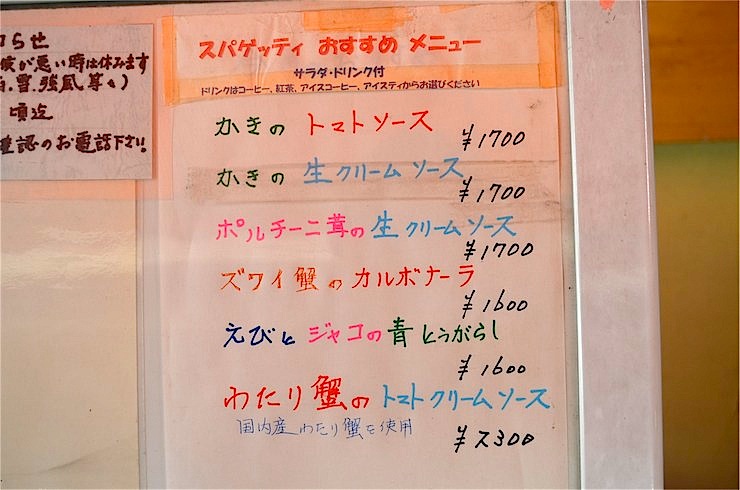 らせ
候が悪い時は休みます
雪.強風等々)
頃迄
確認のお電話下さい!
スパゲッティ おすすめ メニュー
サラダ・ドリンク付
ドリンクはコーヒー、紅茶、アイスコーヒー、アイスティからお選びください
かきの トマトソース
¥1700
かきの 生クリームソース
¥1700
ポルチーニ茸の生クリームソース
¥1700
ズワイ蟹のカルボナーラ
¥1600
えびとジャコの青とうがらし
¥1600
わたり蟹のトマトクリームソース
国内産わたり蟹を使用
¥2300